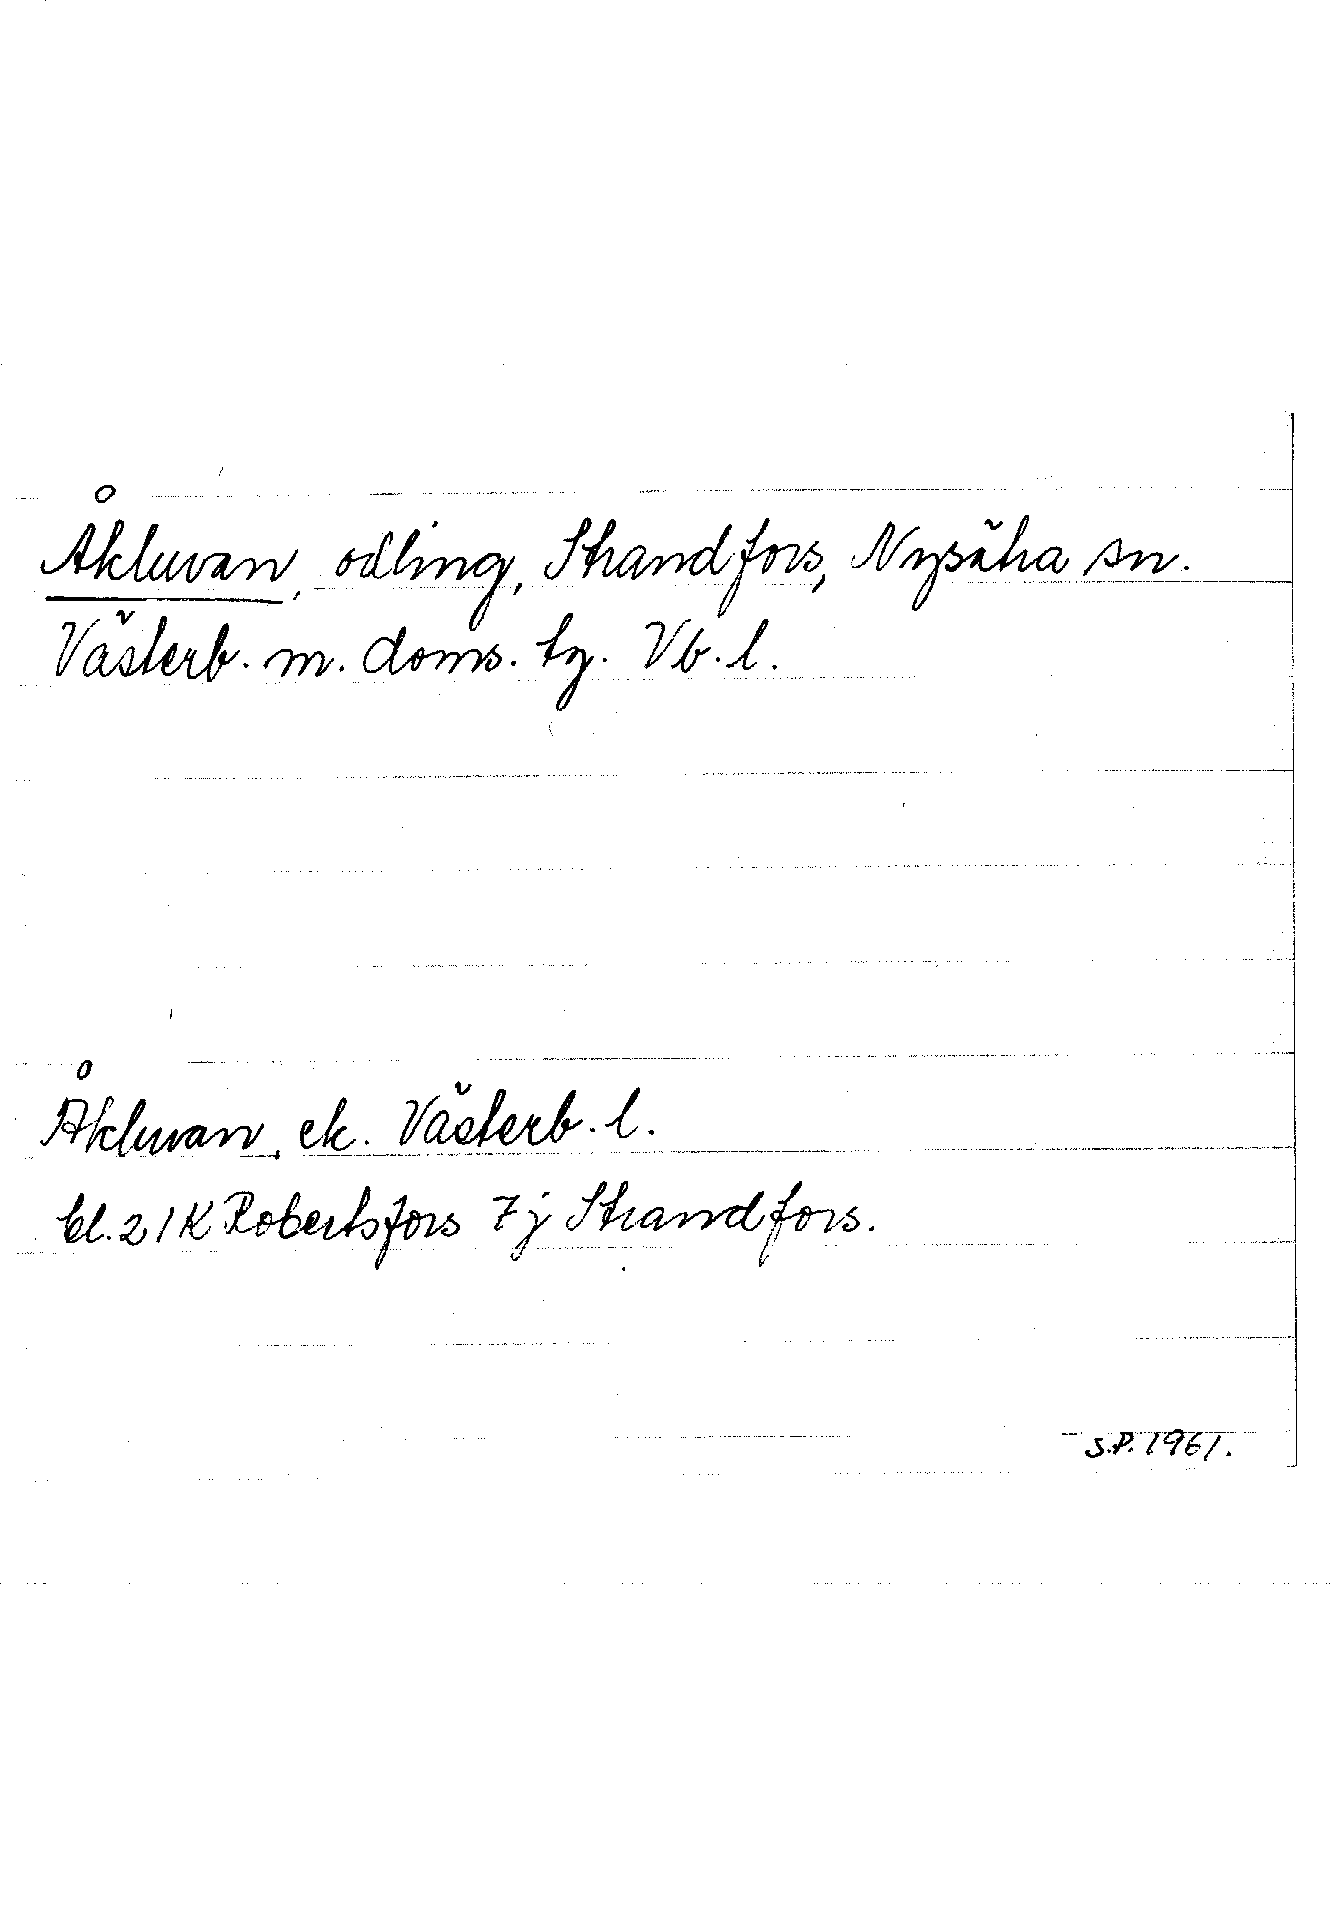 Åkluvan, odling, Strandfors, Nysätra sn.
Västerb. m. doms. tg. Vb. l.
Åkluvan, ek. Västerb. l.
bl. 21K Robertsfors 7j Strandfors.
S.P. 1961.